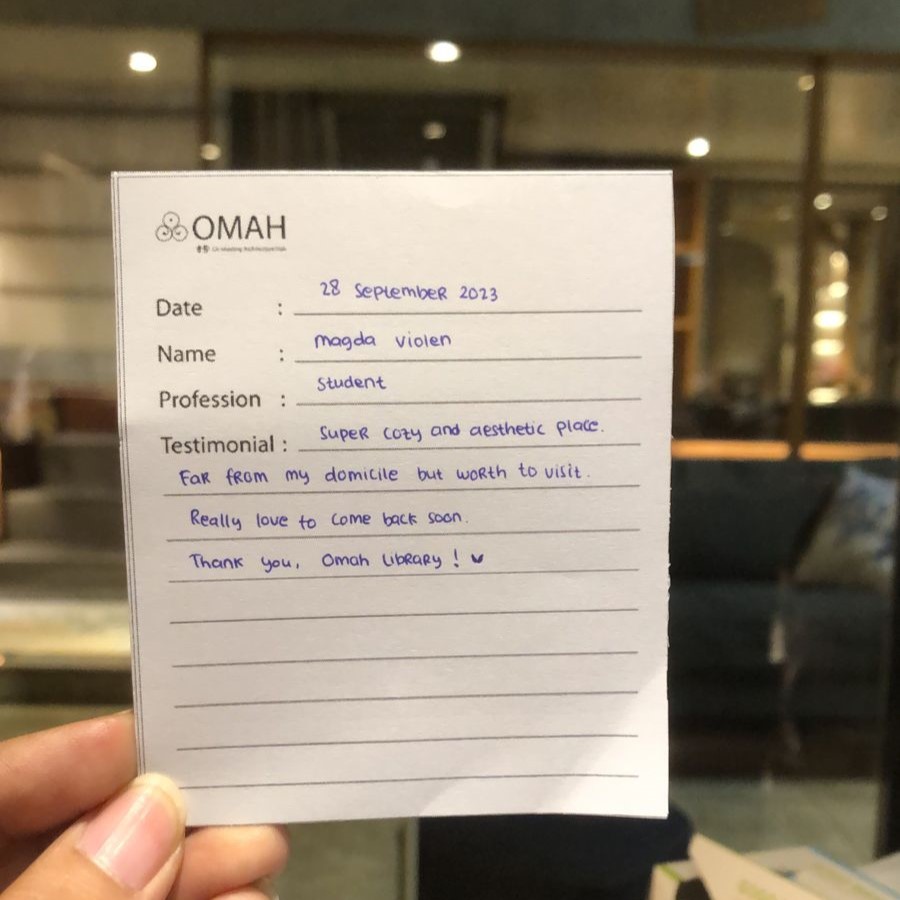 OMAH
Date : 28 September 2023
Name : magda violen
Profession : Student
Testimonial : Super cozy and aesthetic place.
Far from my domicile but worth to visit.
Really love to come back soon.
Thank you, Omah Library !